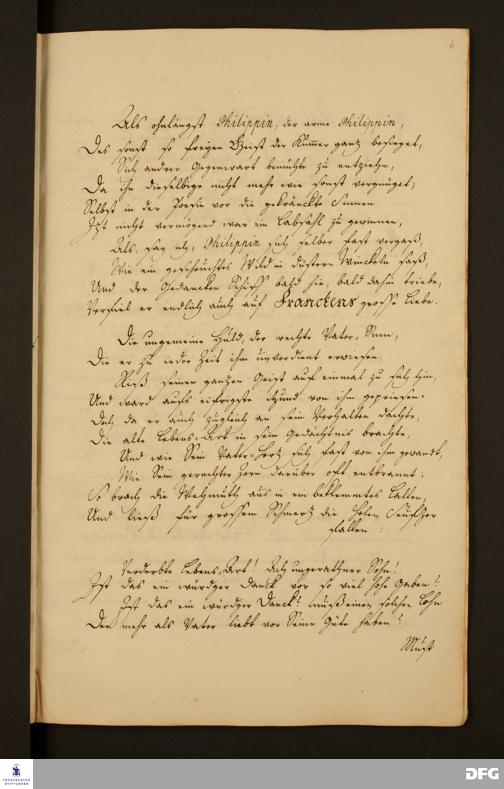 6
Als ohnlängst Philippin, der arme Philippin,
Des sonst so freyen Geist der Kummer ganz besieget,
Sich andrer Gegenwart bemühte zu entziehn,
Da ihn dieselbige nicht mehr wie sonst vergnüget,
Selbst in der Poesie vor die gekränckte Sinnen
Jzt nicht vermögend war ein Labsahl zu gewinnen,
Als, sag ich, Philippin sich selber fast vergaß,
Wie ein gescheuchtes Wild in düstern Winckeln saß,
Und der Gedancken Schiff bald hie, bald dahin triebe,
Verfiel er endlich auch auf Franckens grosse Liebe.
Die ungemeine Huld, der rechte Vater-Sinn,
Die er zu jeder Zeit ihm unverdient erwiesen,
Riß seinen ganzen Geist auf einmal zu sich hin,
Und ward aufs eifrigste von ihm gepriesen.
Doch da er auch zugleich an sein Verhalten dachte,
Die alte Lebens-Art in sein Gedächtnis brachte,
Und wie Sein Vater-Herz sich fast von ihm gewandt,
Wie Sein gerechter Zorn darüber oft entbrannt;
So brach die Wehmuth aus in ein beklemmtes Lallen,
Und ließ für grossem Schmerz die Seufzer
fallen:
Verderbte Lebens-Art! Ach ungerathner Sohn!
Ist das ein würdger Danck vor so viel hohe Gaben?
Ist das ein würdger Danck? muß einen solchen Lohn
Der mehr als Vater liebt vor Seine Güte haben?
Must
FRANCKESCHE
STIFTUNGEN
DFG